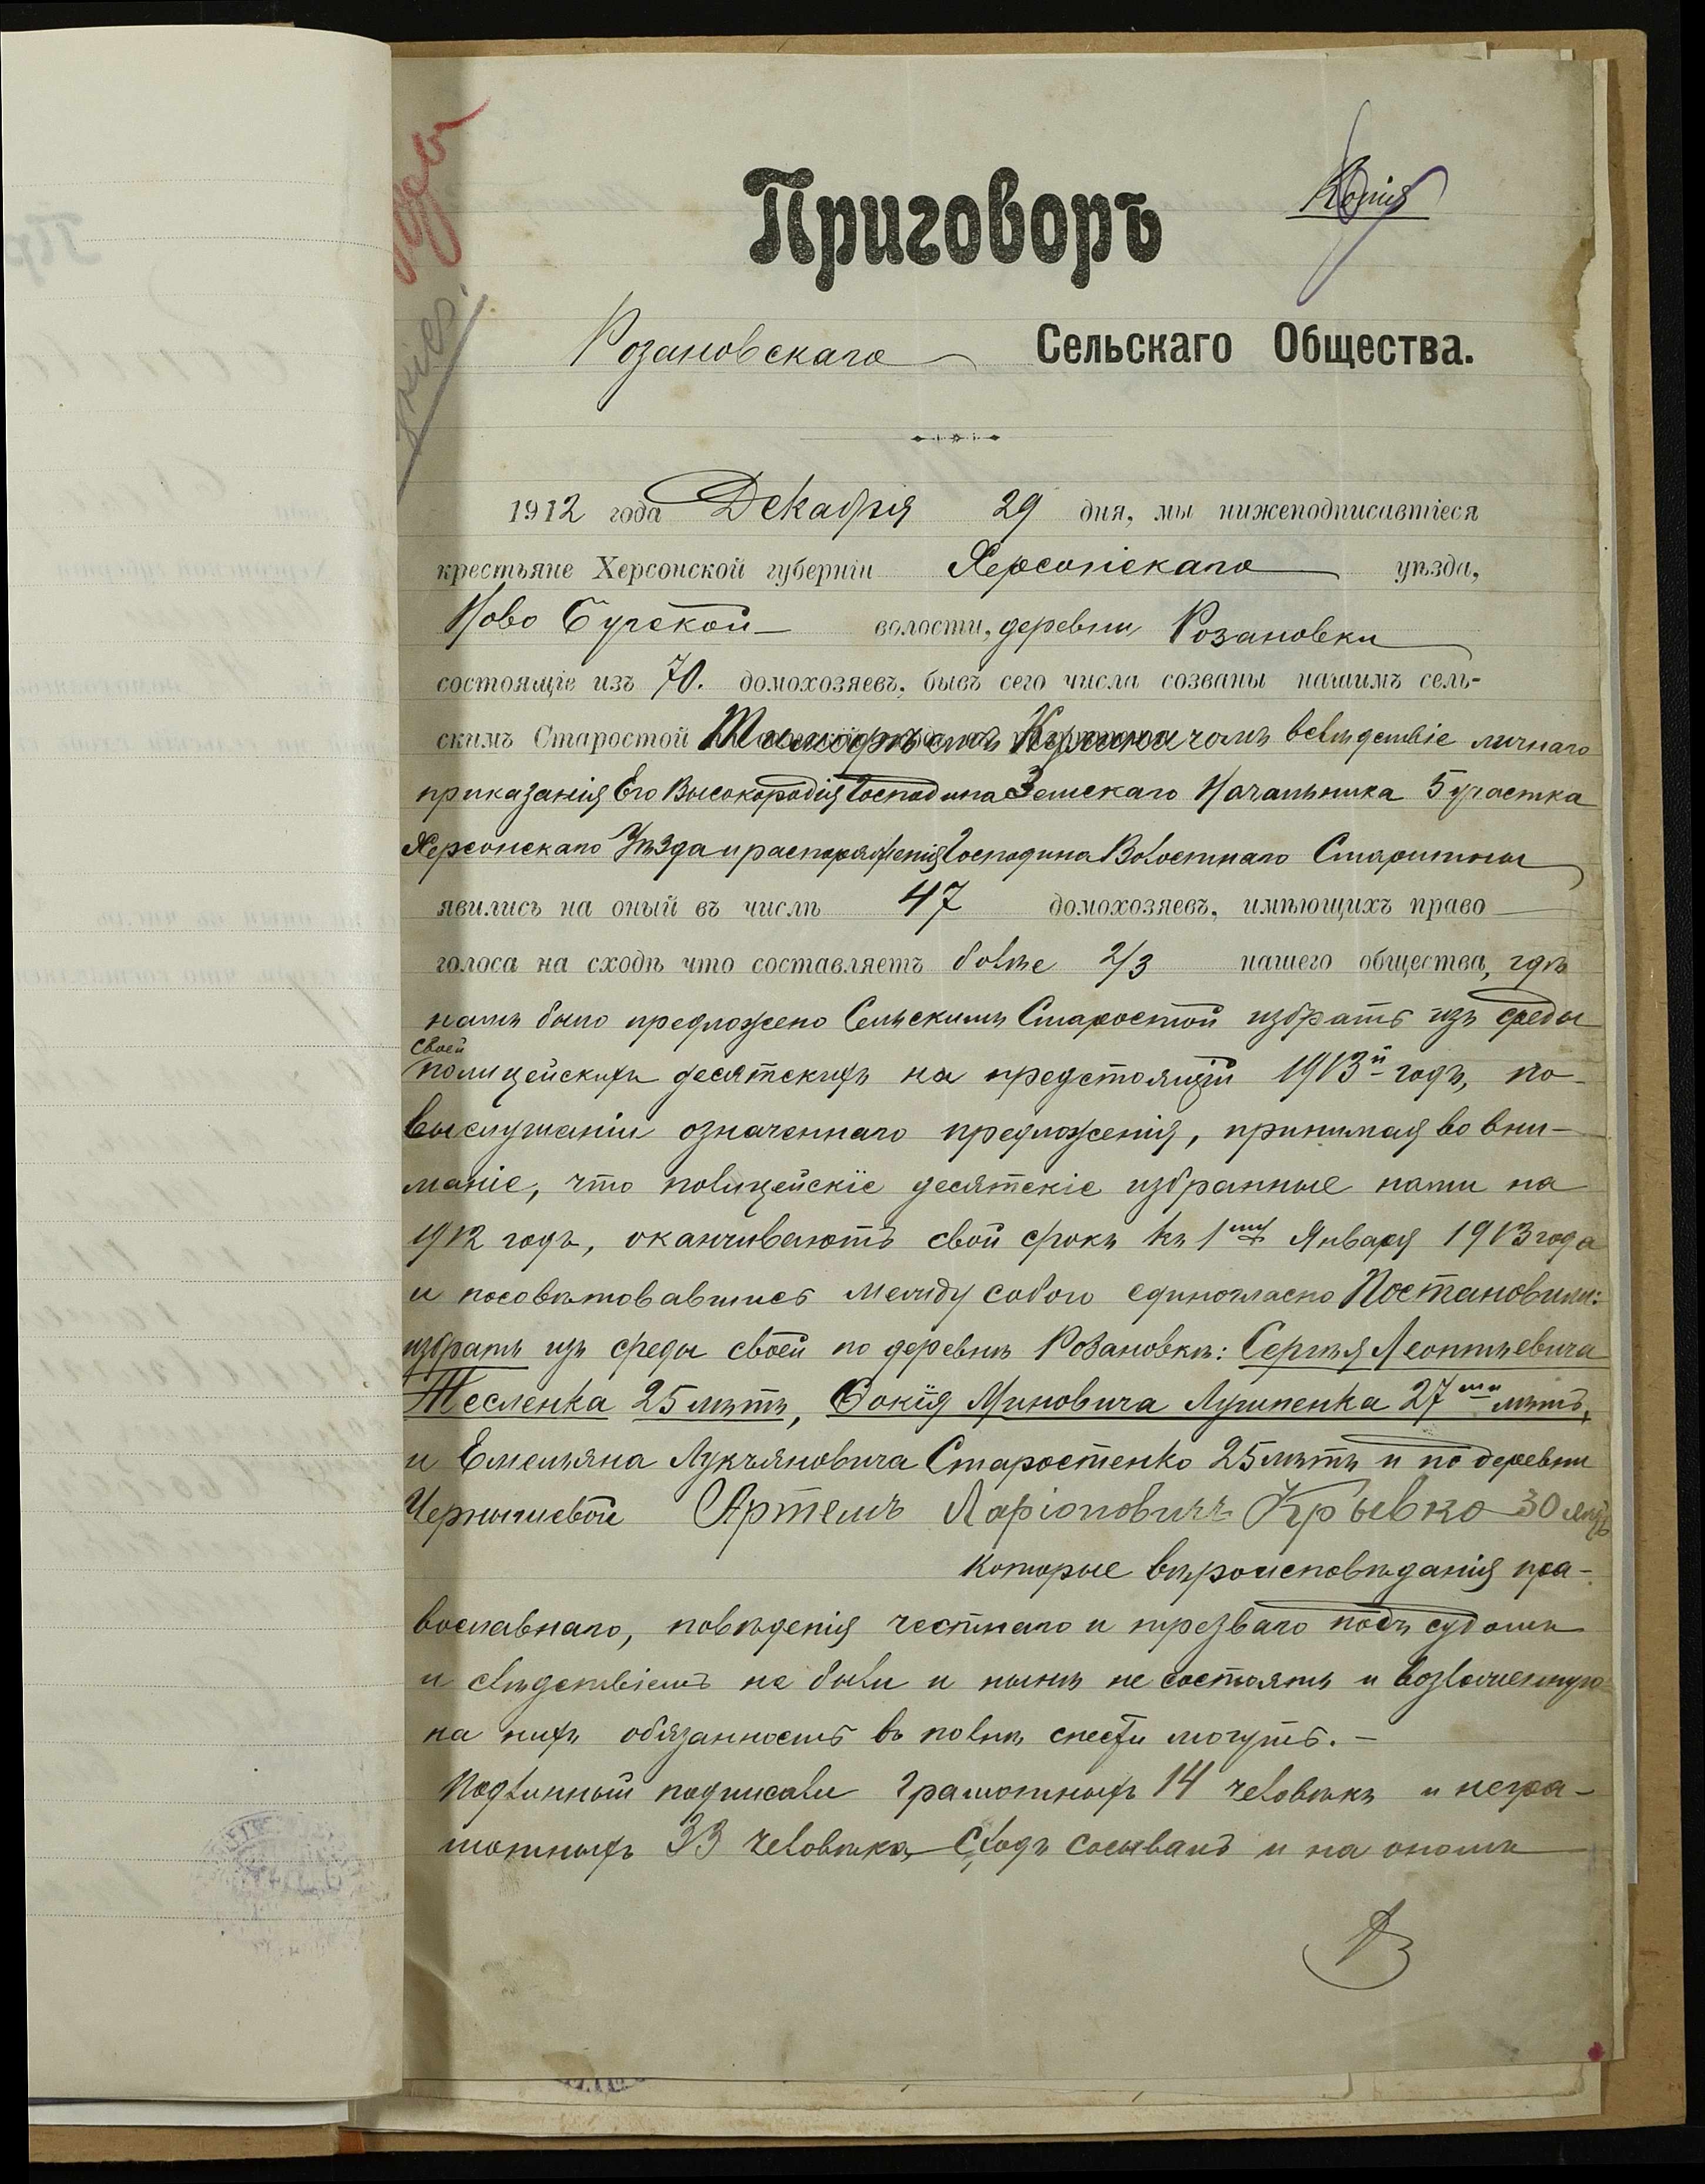 Копія
Приговоръ
Розановскаго Сельскаго Общества.
1912 года Декабря 29 дня, мы нижеподписавшіеся
крестьяне Херсонской губерніи Херсонскаго уѣзда,
Ново Бугской волости, деревни Розановки
состоящіе изъ 70. домохозяевъ, бывъ сего числа созваны нашимъ сель-
скимъ Старостой вслѣдствіе личнаго
приказанія Его Высокородія Господина Земскаго Начальника 5 участка
Херсонскаго Уѣзда и распоряженія Господина Волостнаго Старшины
явились на оный въ числѣ 47 домохозяевъ, имѣющихъ право
голоса на сходѣ что составляетъ болѣе 2/3 нашего общества, гдѣ
намъ было предложено Сельскимъ Старостой избрать изъ среды
своей
полицейскихъ десятскихъ на предстоящій 1913й годъ, по
выслушаніи означеннаго предложенія, принимая во вни-
маніе, что полицейскіе десятскіе избранные нами на
1912 годъ, оканчиваютъ свой срокъ къ 1му Января 1913 года
и посовѣтовавшись между собою единогласно Постановили:
избрать изъ среды своей по деревнѣ Розановкѣ: Сергѣя Леонтьевича
Тесленка 25 лѣтъ, Фокія Миновича Лушпенка 27ми лѣтъ,
и Емельяна Лукъяновича Старостенко 25 лѣтъ и по деревни
Чернышевой Артемъ Ларіоновичъ Крывко 30 лѣтъ
которые вѣроисповѣданія пра-
вославнаго, повѣденія честнаго и трезваго подъ судомъ
и слѣдствіемъ не были и нынѣ не состоятъ и возложенную
на нихъ обязанность въ полнѣ снести могутъ. —
Подлинный подписали грамотныхъ 14 человѣкъ и негра-
мотныхъ 33 человѣка, Сходъ сосывалъ и на ономъ